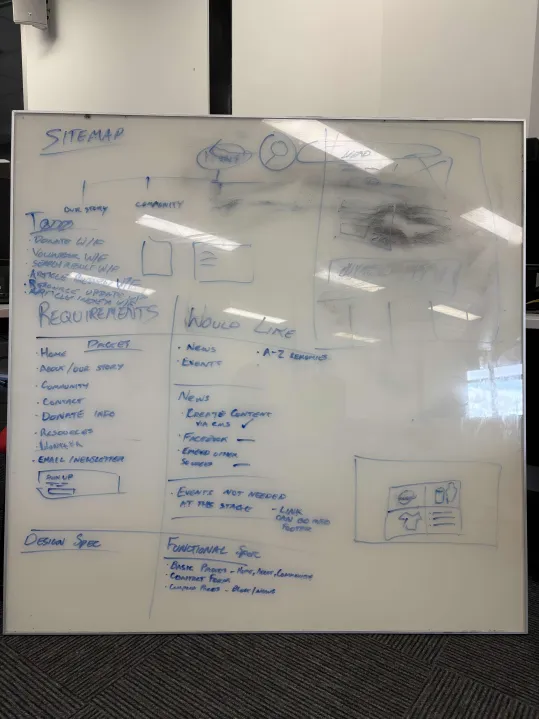 SITEMAP
HOME
OUR STORY
COMMUNITY
TODO
· DONATE W/F
· VOLUNTEER W/F
· SEARCH RESULT W/F
· RESOURCE UPDATE
REQUIREMENTS
PAGES
· HOME
· ABOUT/OUR STORY
· COMMUNITY
· CONTACT
· DONATE INFO
· RESOURCES
· EMAIL/NEWSLETTER
SIGN UP
WOULD LIKE
· NEWS
· A-Z REMEDIES
· EVENTS
NEWS
· CREATE CONTENT
VIA CMS ✓
· FACEBOOK —
· EMBED OTHER
SOURCES —
· EVENTS NOT NEEDED
AT THIS STAGE
- LINK
CAN BE
FOOTER
DESIGN SPEC
FUNCTIONAL SPEC
· BASIC PAGES - HOME, ABOUT, COMMUNITY
· CONTACT FORM
PAGES - BLOG/NEWS